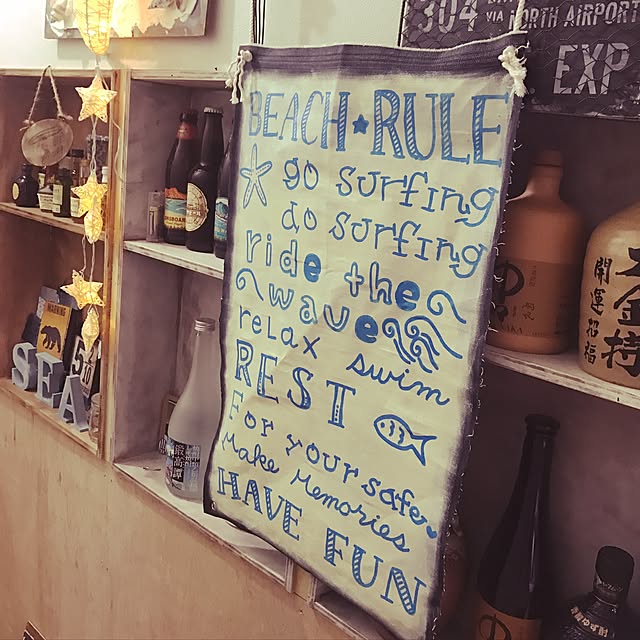 304
VIA NORTH AIRPORT
EXP
BEACH★RULE
go surfing
do surfing
ride the
wave
relax swim
REST
For your safe
Make Memories
HAVE FUN
SEA
WARNING
開運招福
大金持